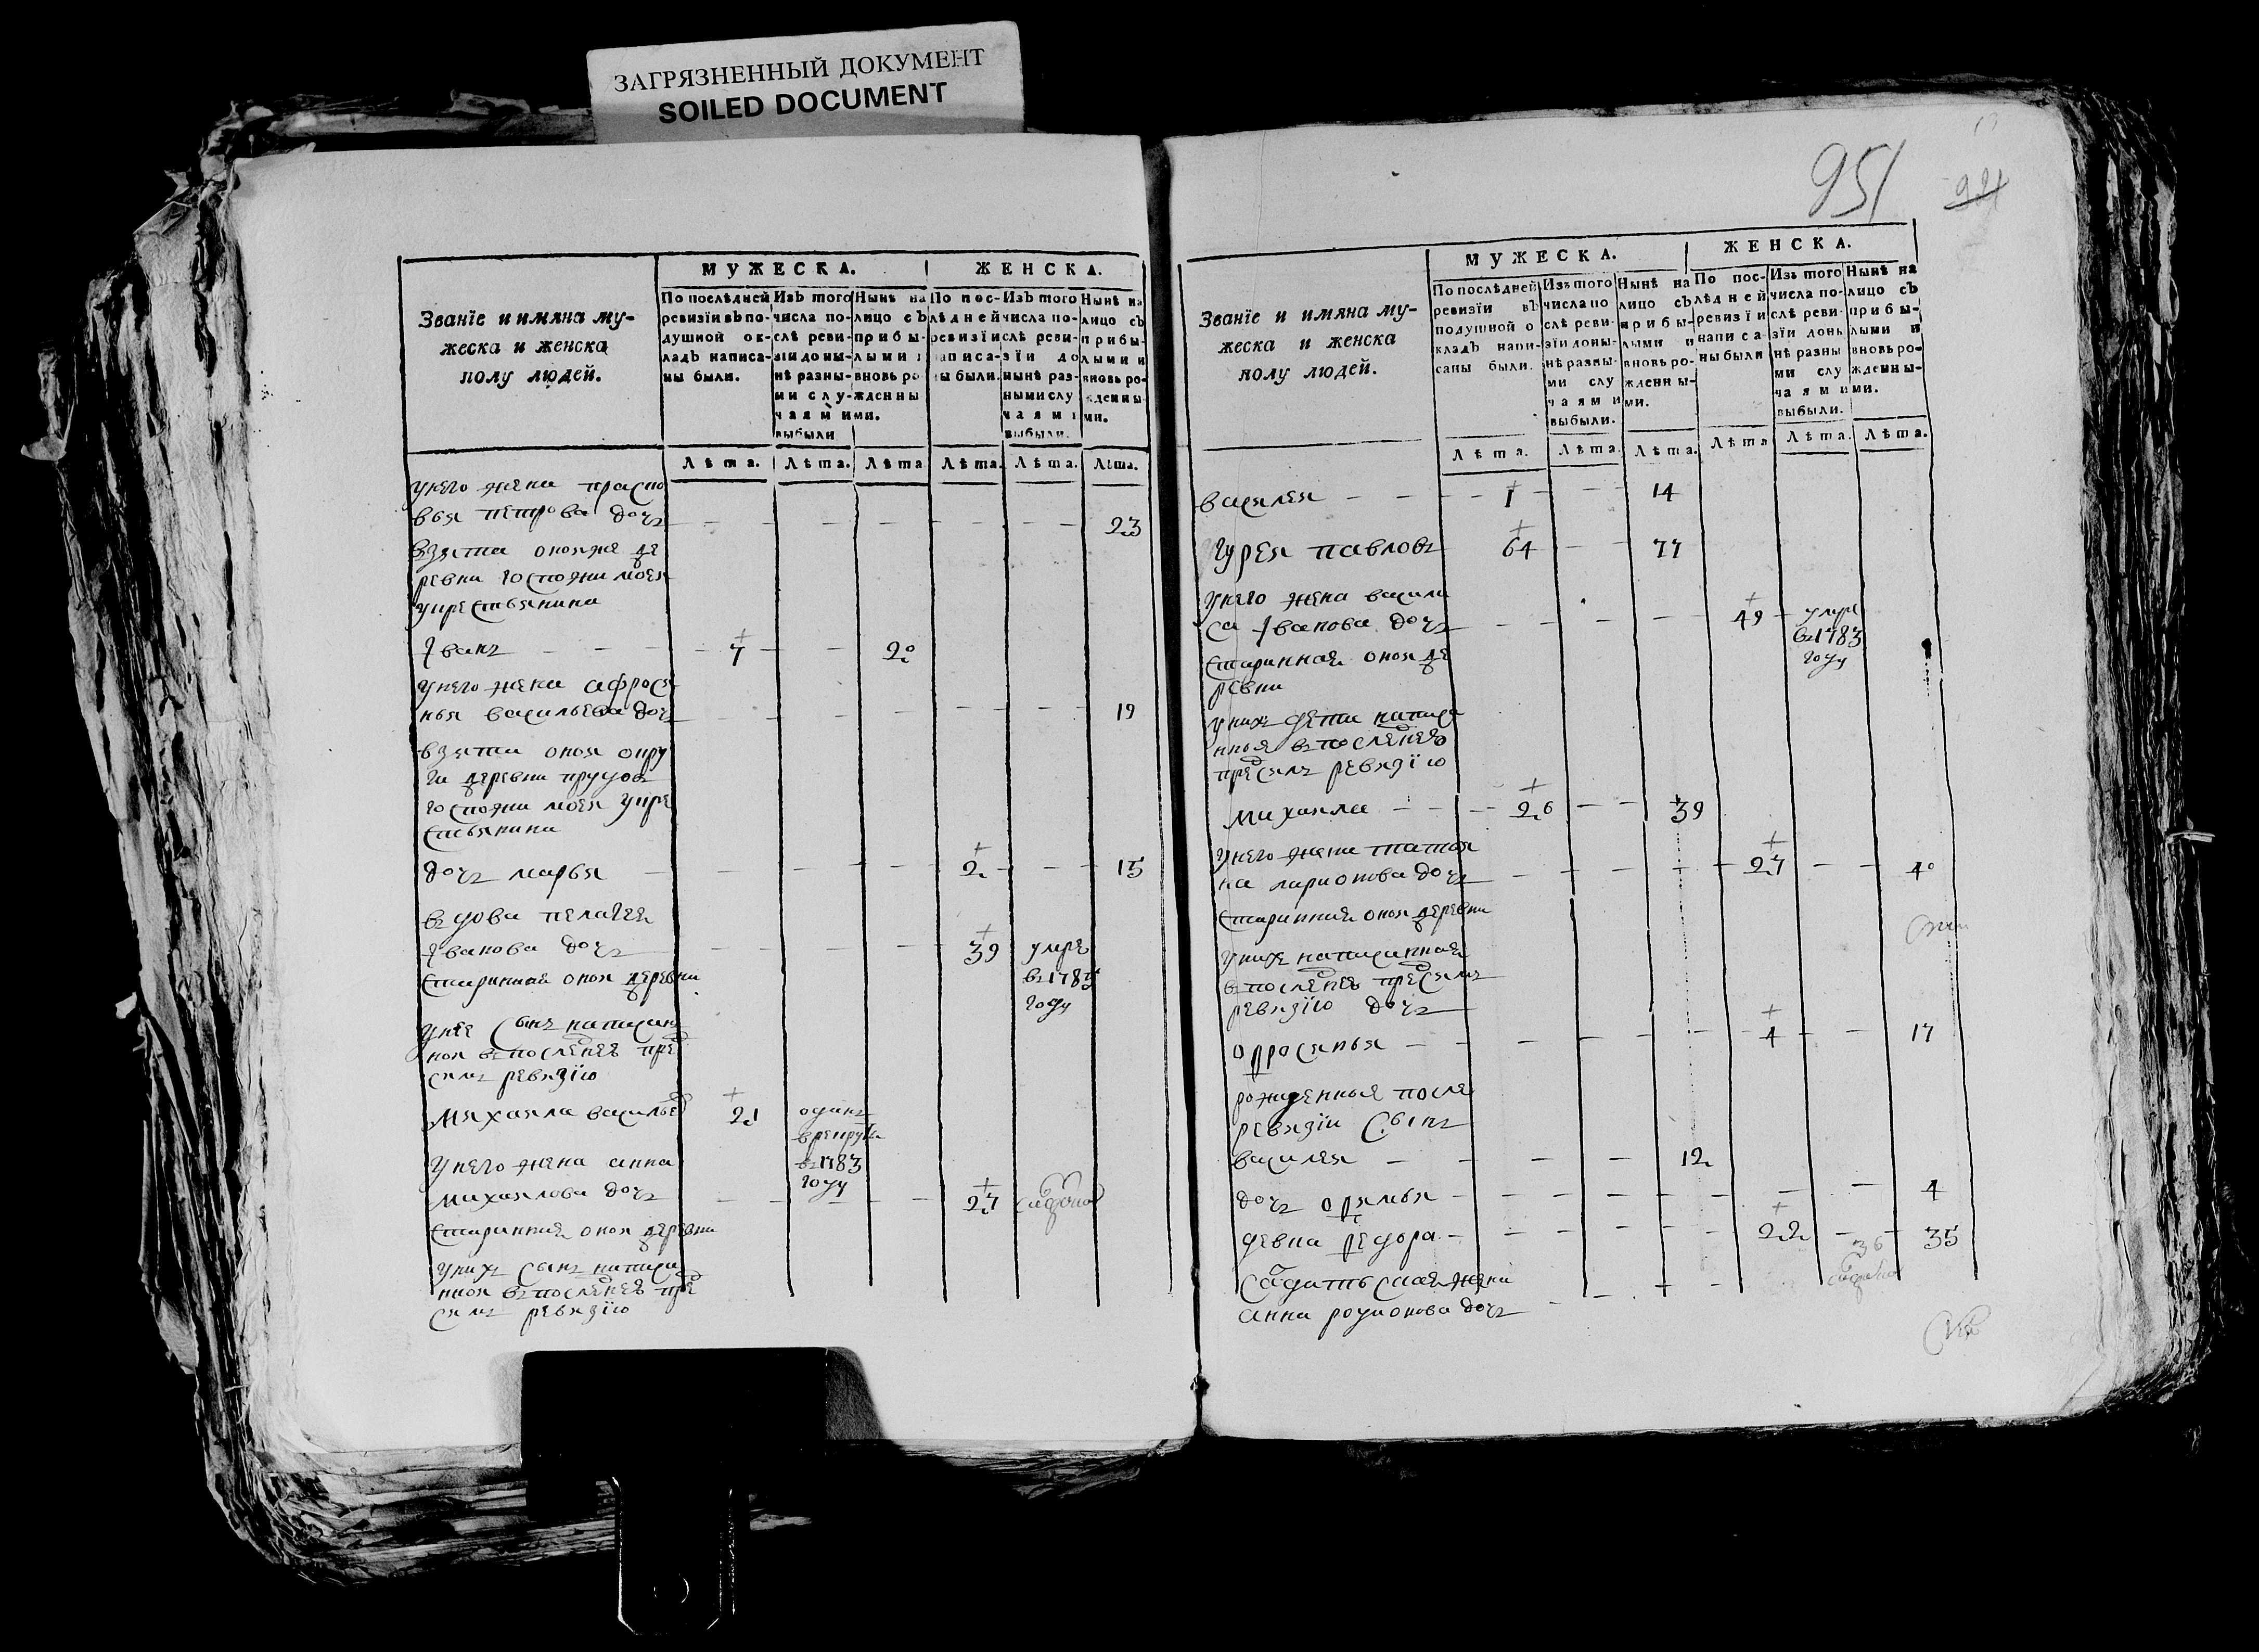 ЗАГРЯЗНЕННЫЙ ДОКУМЕНТ
SOILED DOCUMENT
951
Званїе и имяна му-
жеска и женска
полу людей.
МУЖЕСКА.
ЖЕНСКА.
По послѣдней
ревизїи въ по-
душной ок-
ладъ написа-
ны были.
Изъ того
числа по-
слѣ реви-
зїи доны-
нѣ разны-
ми слу-
чаями
выбыли
Нынѣ на
лицо съ
прибы-
лыми и
вновь ро
жденны
ми.
По пос-
лѣдней
ревизїи
написа-
ны были.
Изъ того
числа по-
слѣ реви-
зїи до
нынѣ раз-
ными слу
чаями
выбыли.
Нынѣ на
лицо съ
прибы-
лыми и
вновь ро-
жденны-
ми.
Лѣта. Лѣта. Лѣта Лѣта. Лѣта. Лѣта.
унего жена праско
вья петрова дочь 23
взята оной же де
ревни госпожи моей
укрестьянина
Иванъ 7 20
унего жена афросе
нья васильева дочь 19
взята оной окру
ги деревни прудовъ
госпожи моей укре
стьянина
дочь марья 2 15
вдова пелагея
Иванова дочь 39 умре
старинная оной деревни въ 1783
году
унее сынъ написан
ной въ последнею пред
симъ ревизїю
михайла василье 21 оданъ
врекруты
унего жена анна въ 1783
михайлова дочь году 27
старинная оной деревни
унихъ сынъ написа
нной въ последнею пред
симъ ревизїю
Званїе и имяна му-
жеска и женска
полу людей.
МУЖЕСКА.
ЖЕНСКА.
По послѣдней
ревизїи въ
подушной о
кладъ напи-
саны были.
Изъ того
числа по
слѣ реви-
зїи доны-
нѣ разны-
ми слу
чаями
выбыли.
Нынѣ на
лицо съ
прибы-
лыми и
вновь ро-
жденны-
ми.
По пос-
лѣдней
ревизїи
написа-
ны были
Изъ того
числа по-
слѣ реви-
зїи доны
нѣ разны
ми слу
чаями
выбыли.
Нынѣ на
лицо съ
прибы-
лыми и
вновь ро-
жденны-
ми.
Лѣта. Лѣта. Лѣта. Лѣта Лѣта. Лѣта.
василей 1 14
гурей павловъ 64 77
унего жена васили
са Иванова дочь 49 умре
въ 1783
году
старинная оной де
ревни
унихъ дети написа
нныя въ последнею
предсимъ ревизїю
михайла 26 39
унего жена татья
на ларионова дочь 27 40
старинная оной деревни
унихъ написанная
въ последнею предсимъ
ревизїю дочь
офросинья 4 17
рожденныя после
ревизїи сынъ
василей 12
дочь офимья 4
девка федора 22 35
36
салдатская жена
анна родионова дочь